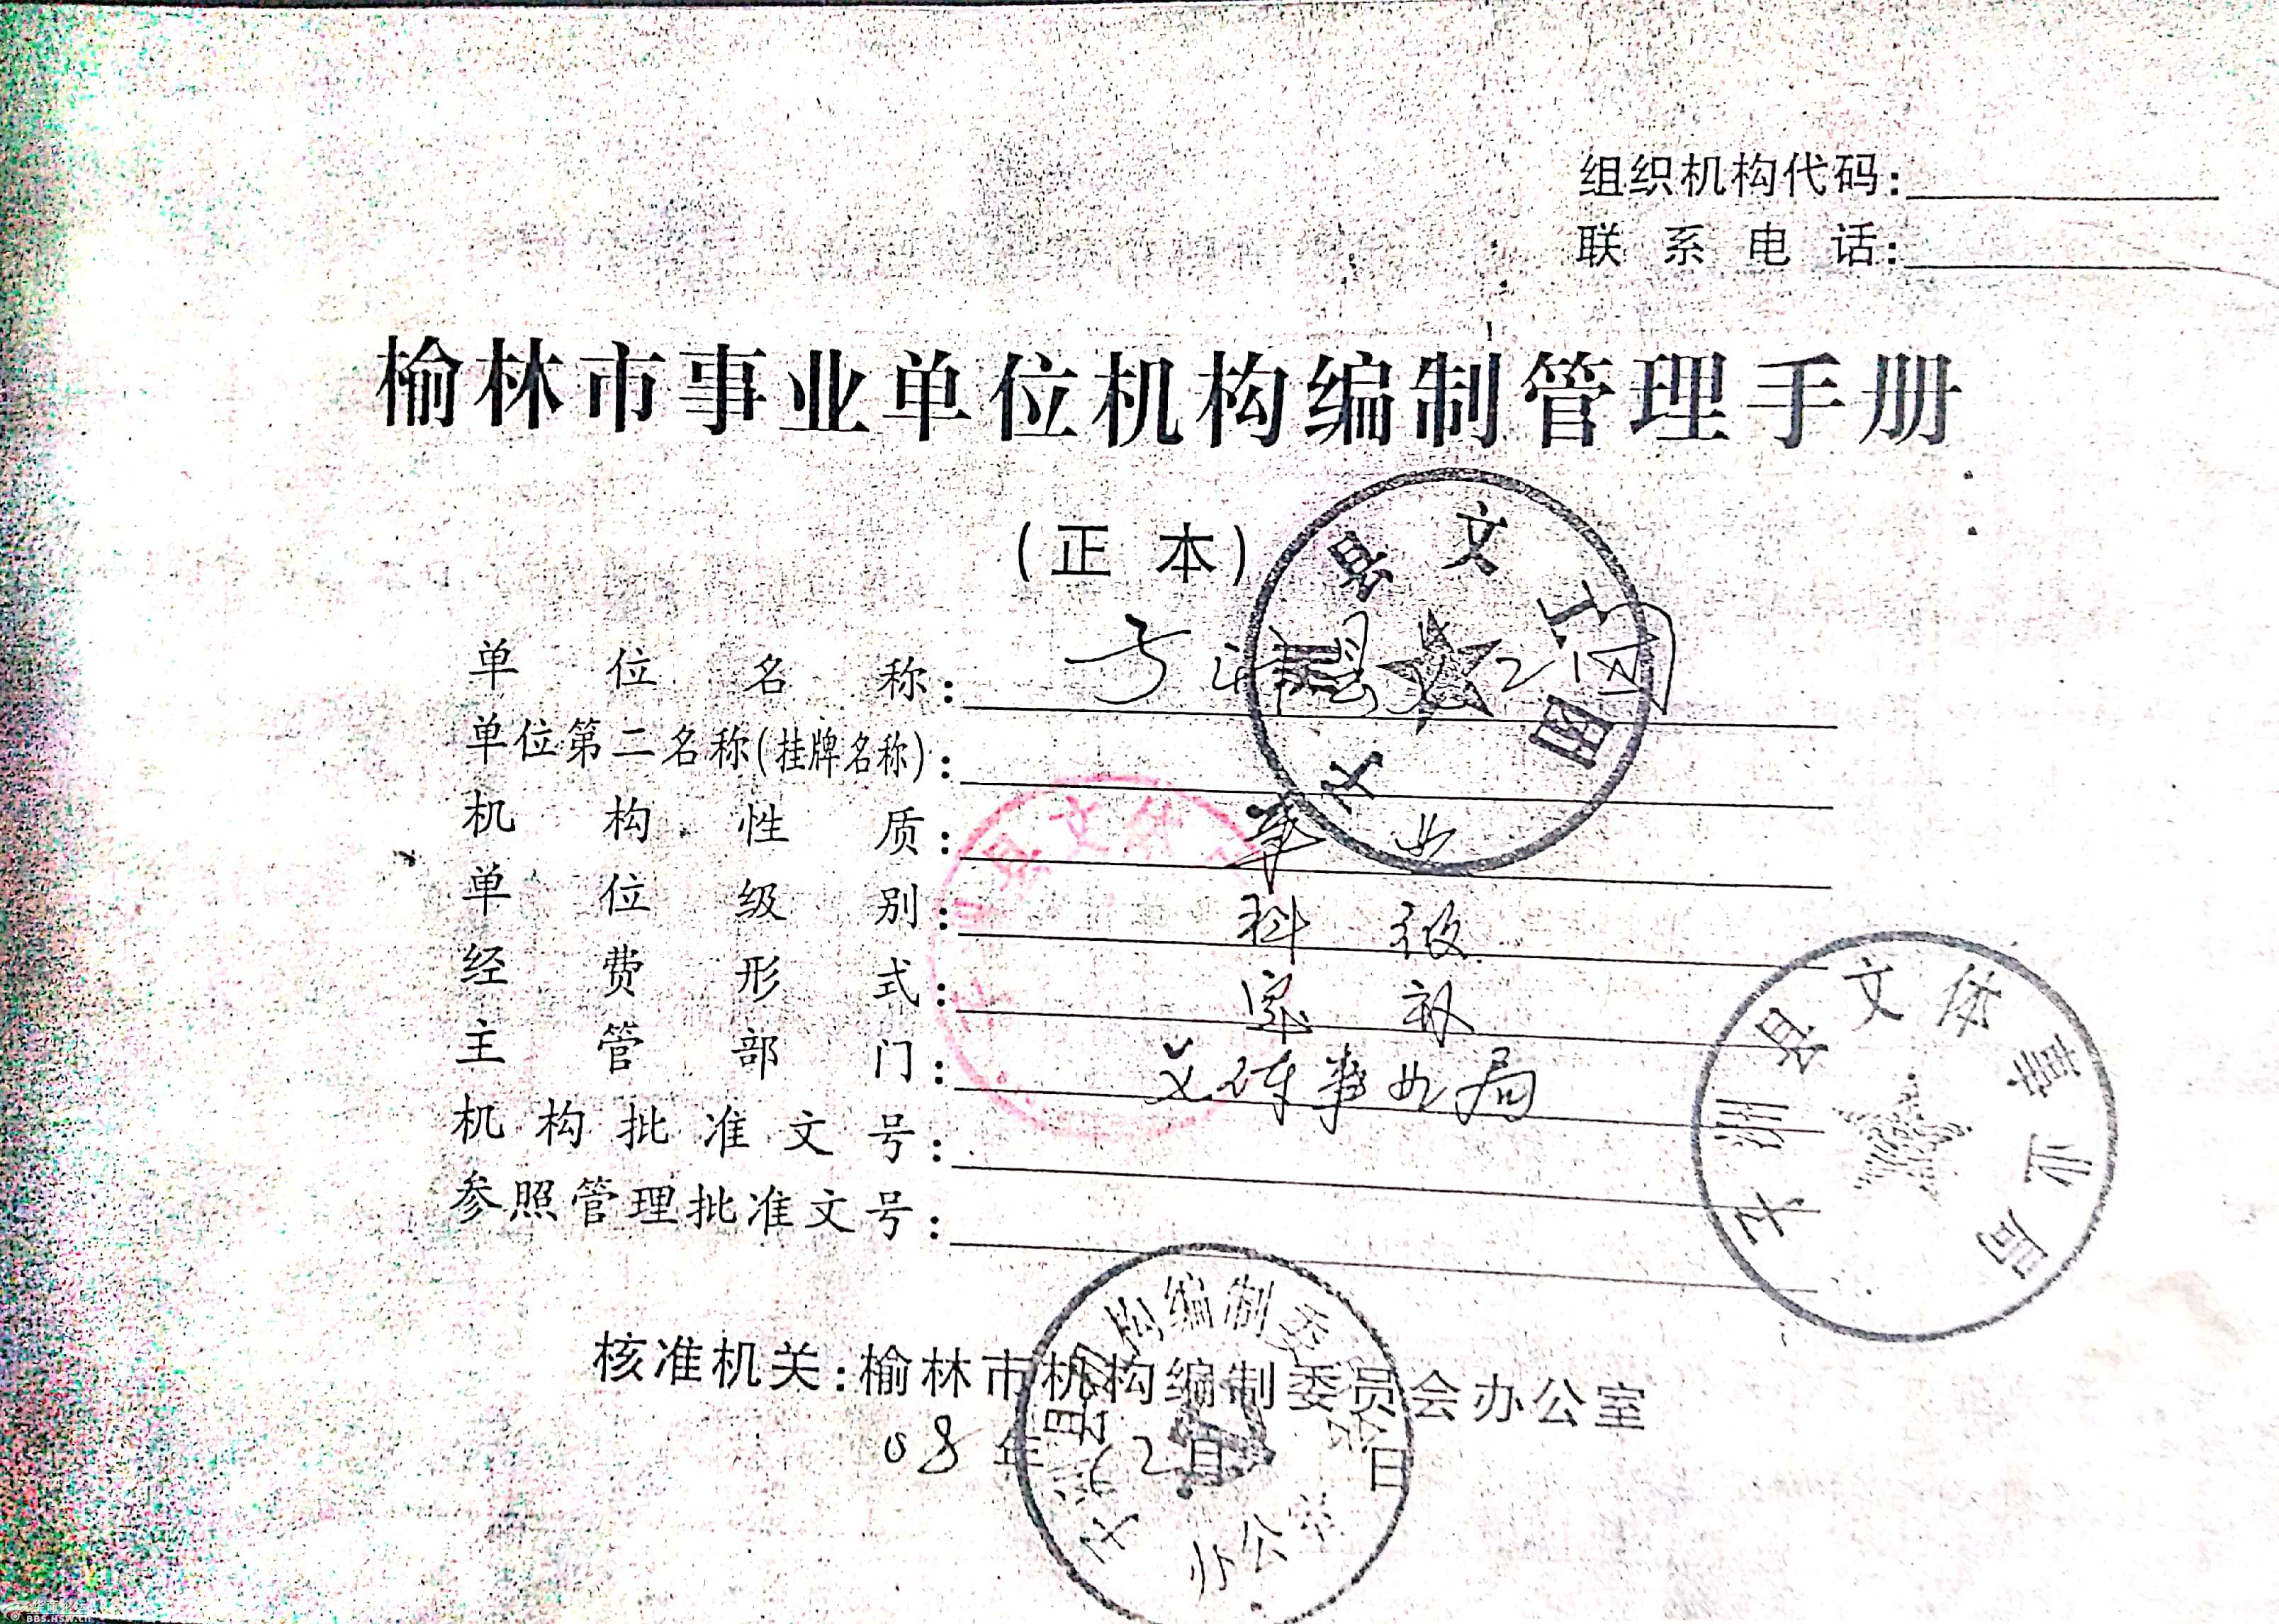 组织机构代码:
联系电话:
榆林市事业单位机构编制管理手册
(正本)
单位名称: 子洲县文工团
单位第二名称(挂牌名称):
机构性质: 事业
单位级别: 科级
经费形式:
主管部门: 文体事业局
机构批准文号:
参照管理批准文号:
核准机关:榆林市机构编制委员会办公室
08年12月 日
县文工团
县文体
子洲县文体事业局
子洲县机构编制委员会办公室
BBS.HSW.CN